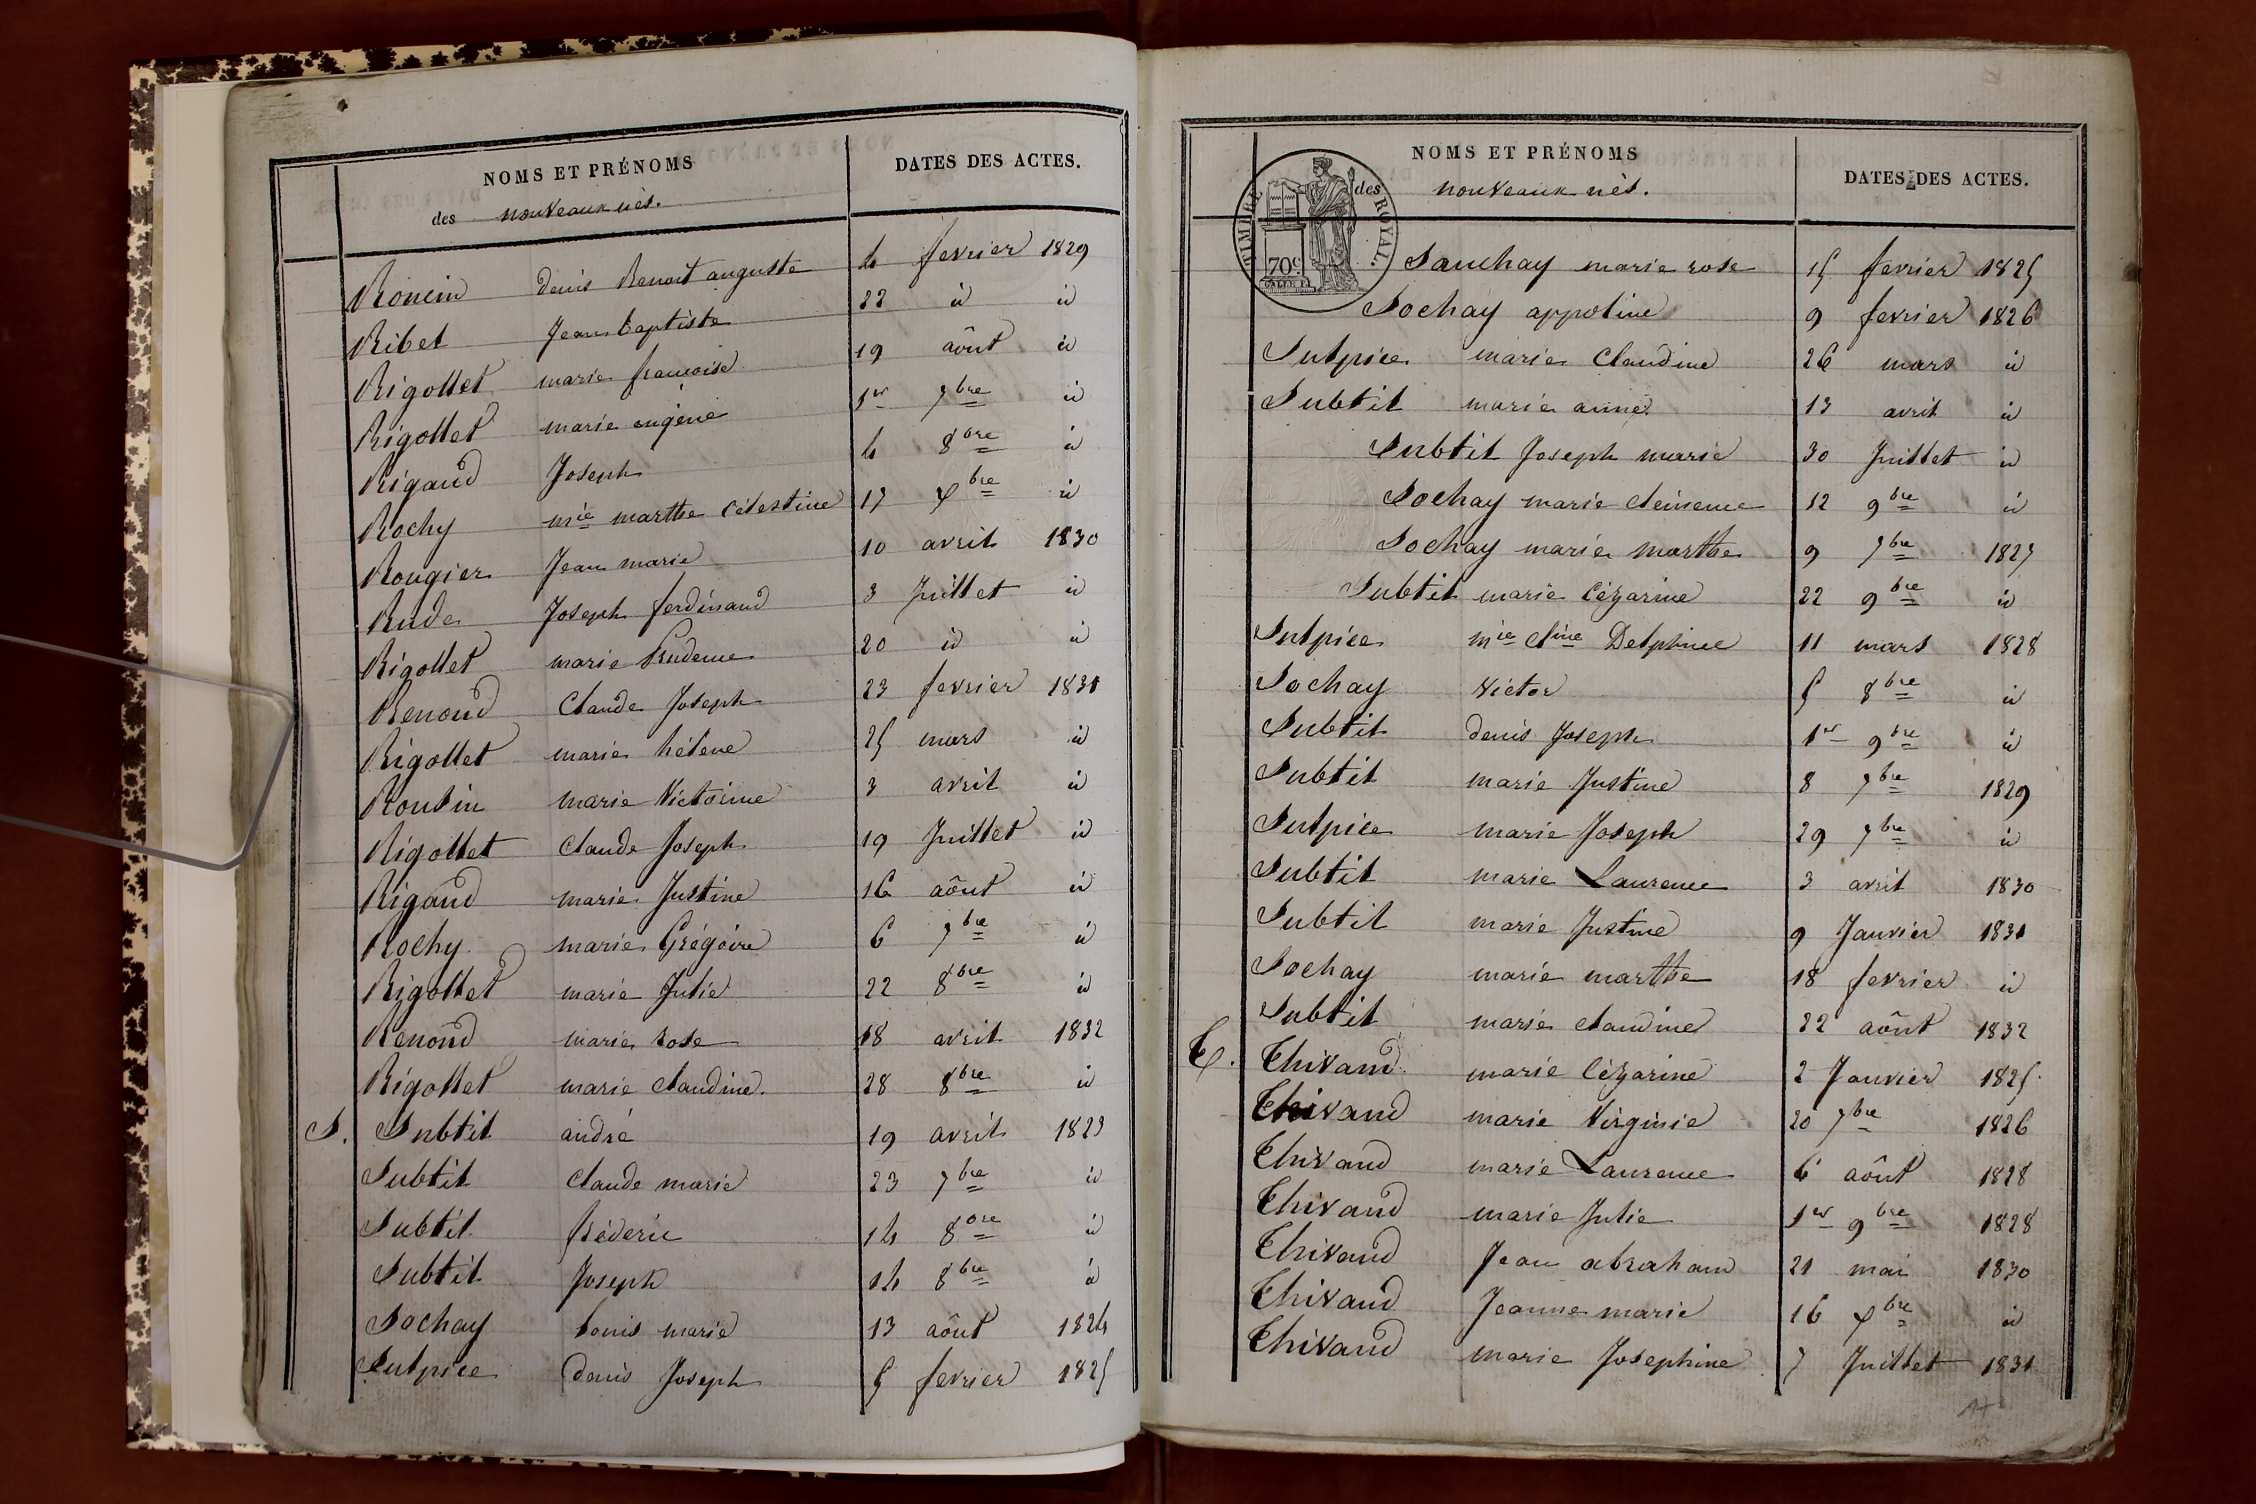 NOMS ET PRÉNOMS
des nouveaux nés.
DATES DES ACTES.
Roncin denis Benoit auguste 4 fevrier 1829
Ribet Jean baptiste 22 id id
Rigollet marie françoise 19 aôut id
Rigollet marie eugène 1er 7bre id
Rigaud Joseph 4 8bre id
Rochy mie marthe Célestine 17 Xbre id
Rougier Jean marie 10 avril 1830
Rude Joseph ferdinand 3 Juillet id
Rigollet marie Prudence 20 id id
Renoud Claude Joseph 23 fevrier 1831
Rigollet marie hélène 25 mars id
Roussin marie Victorine 3 avril id
Rigollet Claude Joseph 19 Juillet id
Rigaud marie Justine 16 aôut id
Rochy marie Grégoire 6 7bre id
Rigollet marie Julie 22 8bre id
Renoud marie rose 18 avril 1832
Rigollet marie claudine 28 8bre id
S. Subtil andré 19 avril 1823
Subtil Claude marie 23 7bre id
Subtil fréderic 14 8bre id
Subtil Joseph 14 8bre id
Sochay Louis marie 13 aôut 1824
Sulpice denis Joseph 5 fevrier 1825
NOMS ET PRÉNOMS
des nouveaux nés.
DATES DES ACTES.
TIMBRE ROYAL.
70c
Sauchay marie rose 15 fevrier 1825
Sochay appoline 9 fevrier 1826
Sulpice marie Claudine 26 mars id
Subtil marie anne 13 avril id
Subtil Joseph marie 30 Juillet id
Sochay marie clémence 12 9bre id
Sochay marie marthe 9 7bre 1827
Subtil marie Cézarine 22 9bre id
Sulpice mie Cine Delphine 11 mars 1828
Sochay Victor 5 8bre id
Subtil denis Joseph 1er 9bre id
Subtil marie Justine 8 7bre 1829
Sulpice marie Joseph 29 7bre id
Subtil marie Laurence 3 avril 1830
Subtil marie Justine 9 Janvier 1831
Sochay marie marthe 18 fevrier id
Subtil marie claudine 22 aôut 1832
T. Thivand marie Cézarine 2 Janvier 1825
Thivand marie Virginie 20 7bre 1826
Thivand marie Laurence 6 aôut 1828
Thivand marie Julie 1er 9bre 1828
Thivand Jean abraham 21 mai 1830
Thivand Jeanne marie 16 Xbre id
Thivand marie Josephine 7 Juillet 1831